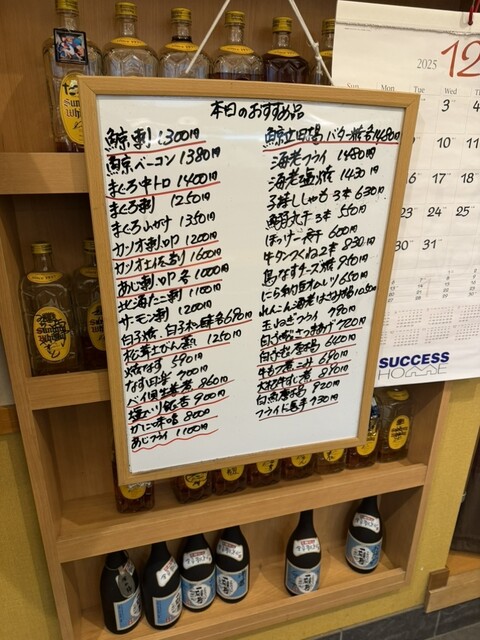 本日のおすすめ品
鯨刺 1300円
鯨ベーコン 1380円
まぐろ中トロ 1400円
まぐろ刺 1250円
まぐろぶつ 1350円
カツオ刺 叩 1200円
カツオ土佐造り 1600円
あじ刺 叩 各 1000円
北海たこ刺 1100円
サーモン刺 1200円
白子焼、白子ポン酢各690円
松茸土びん蒸し 1250円
焼なす 590円
なす田楽 700円
バイ貝生姜煮 860円
塩いり銀杏 900円
かに味噌 800円
あじフライ 1100円
鯨立田揚 バター焼各1480円
海老フライ 1480円
海老塩焼 1430円
子持ししゃも 3本 630円
鰯丸干 3本 550円
ほっけ一夜干 600円
牛タンつくね2本 830円
鳥なすチーズ焼 950円
にら納豆オムレツ 650円
れんこん海老はさみ揚 1050円
玉ねぎフライ 790円
白子天ぷら 700円
白子唐揚 640円
牛もつ煮込み 690円
大根牛すじ煮 890円
白魚唐揚 920円
フライドごぼう 730円
2025
12
Sun
Tue
Wed
Thu
3
4
10
17
24
30
31
SUCCESS
HOME
Suntory
Whisky